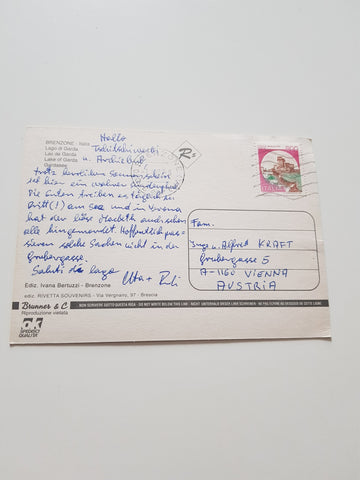 BRENZONE - Italia
Lago di Garda
Lac de Garda
Lake of Garda
Gardasee
Hallo
u.
Trotz herrlichem Sonnenschein
ist hier ein wahrer
Die Guten treiben es täglich zu
dritt (!) am See und in Verona
hat der böse Macbeth auch schon
alle hingemordet. Hoffentlich pas-
sieren solche Sachen nicht in der
Grubergasse.
Saluti da lago
Uta +
Fam.
Inge u. Alfred KRAFT
Grubergasse 5
A-1160 VIENNA
AUSTRIA
ITALIA
Ediz. Ivana Bertuzzi - Brenzone
ediz. RIVETTA SOUVENIRS - Via Vergnano, 97 - Brescia
Brunner & C
Riproduzione vietata
NON SCRIVERE SOTTO QUESTA RIGA - DO NOT WRITE BELOW THIS LINE - NICHT UNTERHALB DIESER LINIE SCHREIBEN - NE PAS ECRIRE AU DESSOUS DE CETTE LIGNE
QUALITÀ